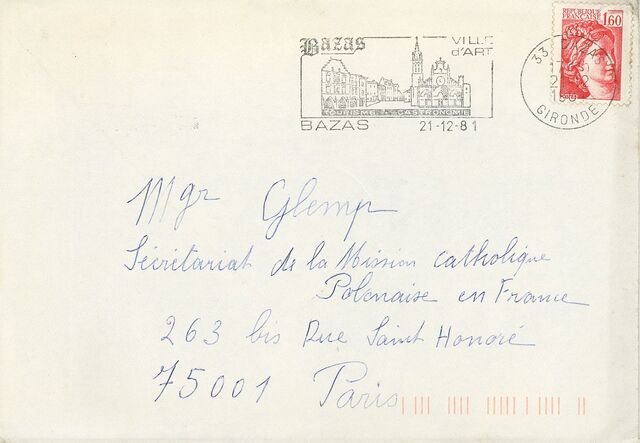 Bazas VILLE
d'ART
TOURISME GASTRONOMIE
BAZAS 21-12-81
REPUBLIQUE
FRANCAISE 1,60
33 BAZAS
GIRONDE
Mgr Glemp
Sécrétariat de la Mission catholique
Polonaise en France
263 bis Rue Saint Honoré
75001 Paris